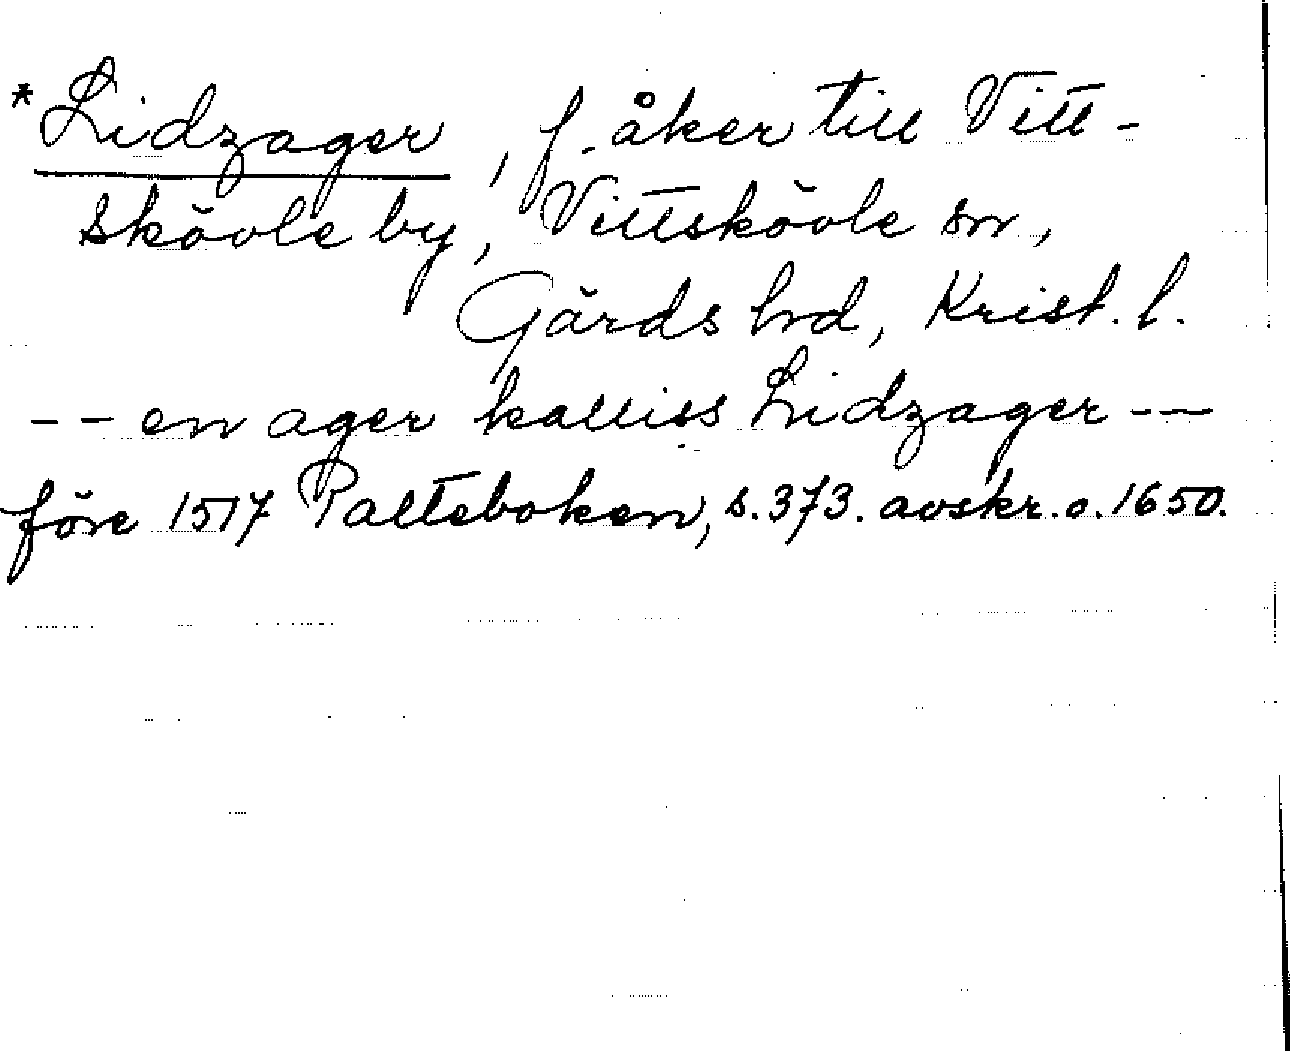 *Lidzager, f. åker till Vitt-
sköole by, Vittsköole sn,
Gärds hd, Krist. l.
-- en ager kalliss Lidzager --
före 1517 Palteboken, s. 373. avskr. o. 1650.